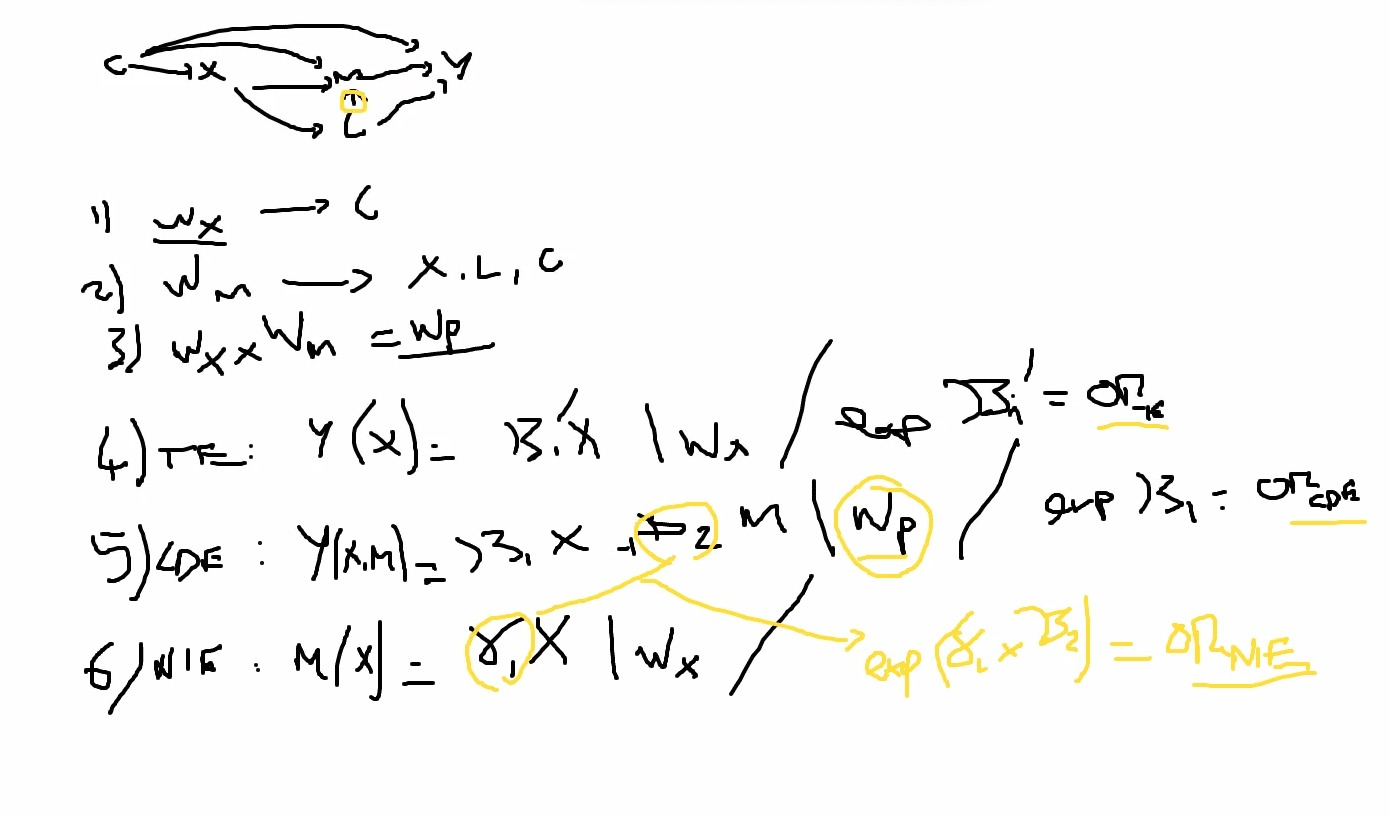 C X M Y
L
1) Wx → C
2) WM → X, L, C
3) Wx x Wm = Wp
4) TE: Y(X) = B1'X | Wx / exp B1' = OR TE
5) CDE: Y(X,M) = B1 X + 2 M | Wp / exp B1 = OR CDE
6) NIE: M(X) = γ1 X | Wx / exp(γ1 x B2) = OR NIE